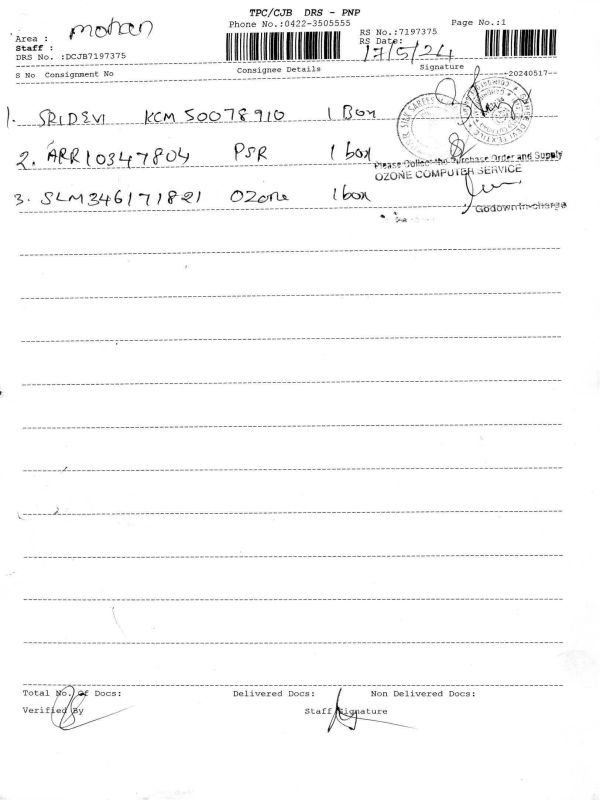 TPC/CJB DRS - PNP
Phone No.:0422-3505555
Page No.:1
Area : mohan
Staff :
DRS No. :DCJB7197375
RS No.:7197375
RS Date: 17/5/24
S No Consignment No Consignee Details Signature --20240517--
1. SRIDEVI KCM 50078910 1 Box
2. ARR10347804 PSR 1 box
Please Collect the Purchase Order and Supply
OZONE COMPUTER SERVICE
3. SLM346171821 OZone 1 box
Godown In-charge
Total No. Of Docs: Delivered Docs: Non Delivered Docs:
Verified By Staff Signature